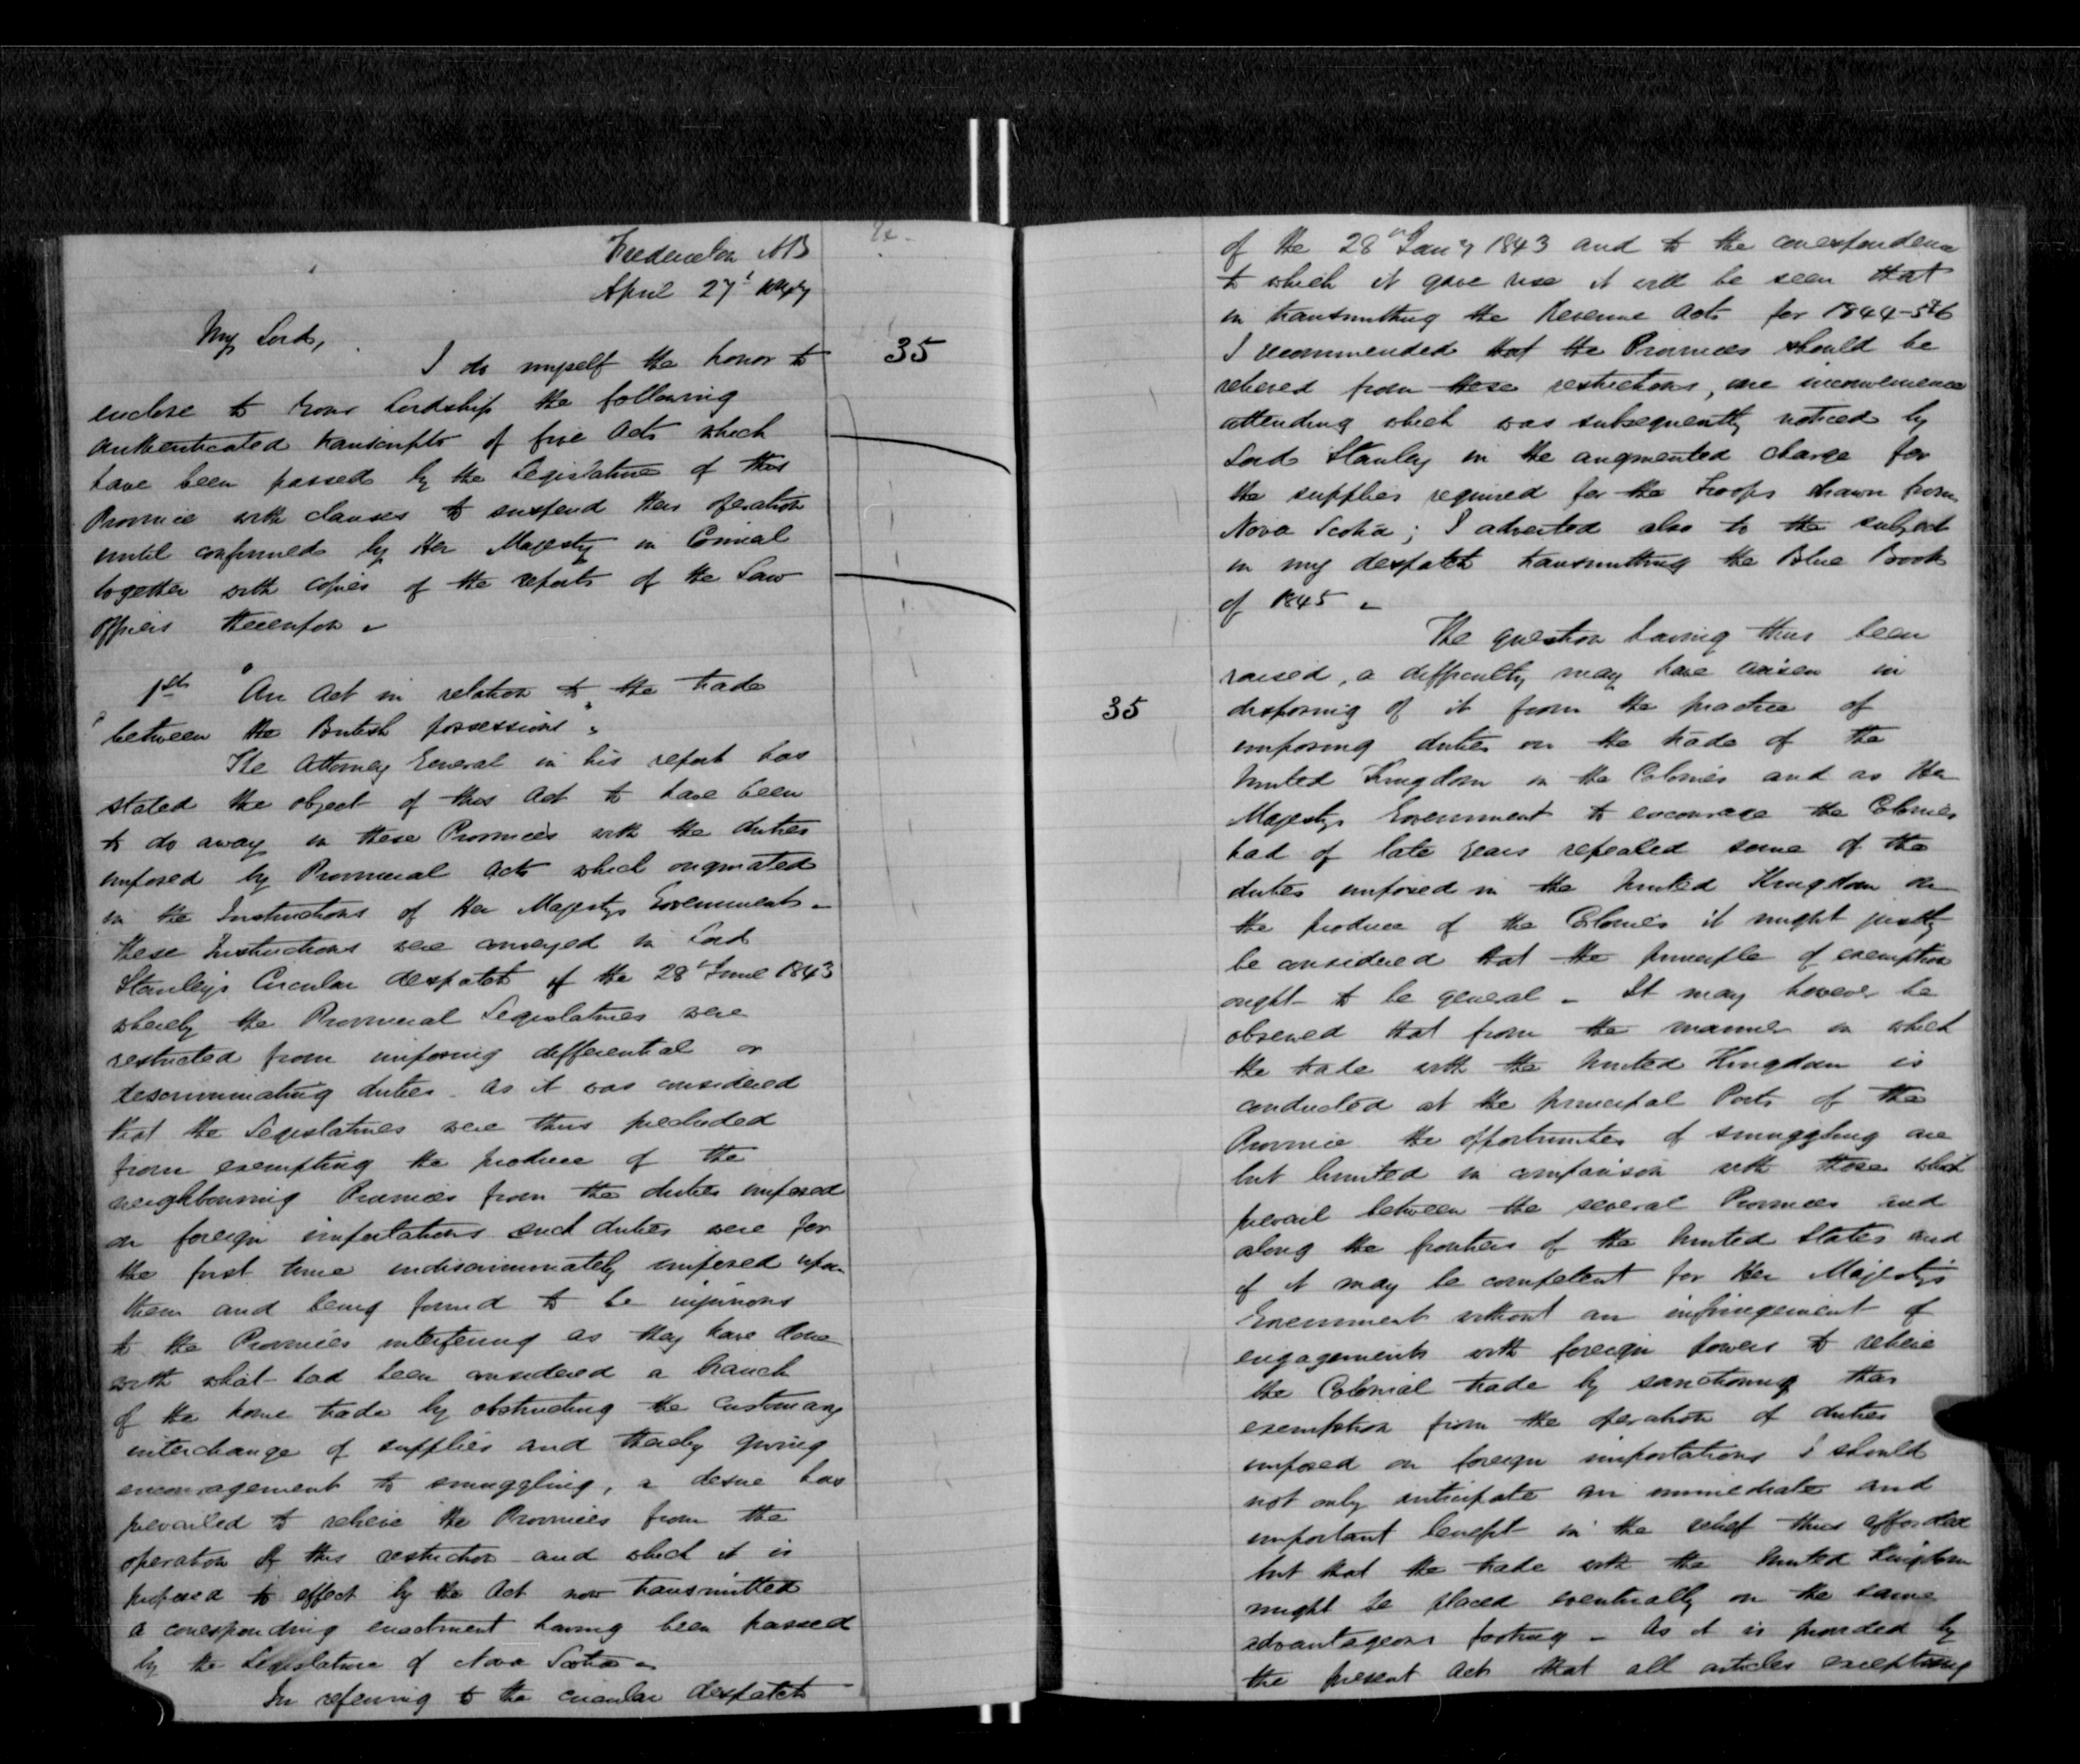 Fredericton NB
April 27th 1847
My Lord,
35
I do myself the honor to
enclose to Your Lordship the following
authenticated transcripts of five Acts which
have been passed by the Legislature of this
Province with clauses to suspend their operation
until confirmed by Her Majesty in Council
together with copies of the reports of the Law
officers thereupon.
1st "An Act in relation to the trade
"between the British possessions".
The Attorney General in his report has
stated the object of this Act to have been
to do away in these Provinces with the duties
imposed by Provincial Acts which originated
in the Instructions of Her Majestys Government.
These Instructions were conveyed in Lord
Stanley's Circular despatch of the 28th June 1843
whereby the Provincial Legislatures were
restricted from imposing differential or
descriminating duties. As it was considered
that the Legislatures were thus precluded
from exempting the produce of the
neighbouring Provinces from the duties imposed
on foreign importations such duties were for
the first time indiscriminately imposed upon
them and being found to be injurious
to the Provinces interfering as they have done
with what had been considered a branch
of the home trade by obstructing the customary
interchange of supplies and thereby giving
encouragement to smuggling, a desire has
prevailed to relieve the Provinces from the
operation of this restriction and which it is
proposed to effect by the Act now transmitted
a corresponding enactment having been passed
by the Legislature of Nova Scotia.
In referring to the circular despatch
of the 28th Jany 1843 and to the correspondence
to which it gave rise it will be seen that
in transmitting the Revenue Acts for 1844-5&6
I recommended that the Provinces should be
relieved from these restrictions, one inconvenience
attending which was subsequently noticed by
Lord Stanley in the augmented charge for
the supplies required for the Troops drawn from
Nova Scotia; I adverted also to the subject
in my despatch transmitting the Blue Book
of 1845.
The question having thus been
raised, a difficulty may have arisen in
35
disposing of it from the practice of
imposing duties on the trade of the
United Kingdom in the Colonies and as Her
Majestys Government to encourage the Colonies
had of late years repealed some of the
duties imposed in the United Kingdom on
the produce of the Colonies it might justly
be considered that the principle of exemption
ought to be general. It may however be
observed that from the manner in which
the trade with the United Kingdom is
conducted at the principal Ports of the
Province the opportunities of smuggling are
but limited in comparison with those which
prevail between the several Provinces and
along the frontiers of the United States and
if it may be competent for Her Majesty's
Government without an infringement of
engagements with foreign powers to relieve
the Colonial trade by sanctioning this
exemption from the operation of duties
imposed on foreign importations I should
not only anticipate an immediate and
important benefit in the relief thus afforded
but that the trade with the United Kingdom
might be placed eventually on the same
advantageous footing. As it is provided by
the present Act that all articles excepting